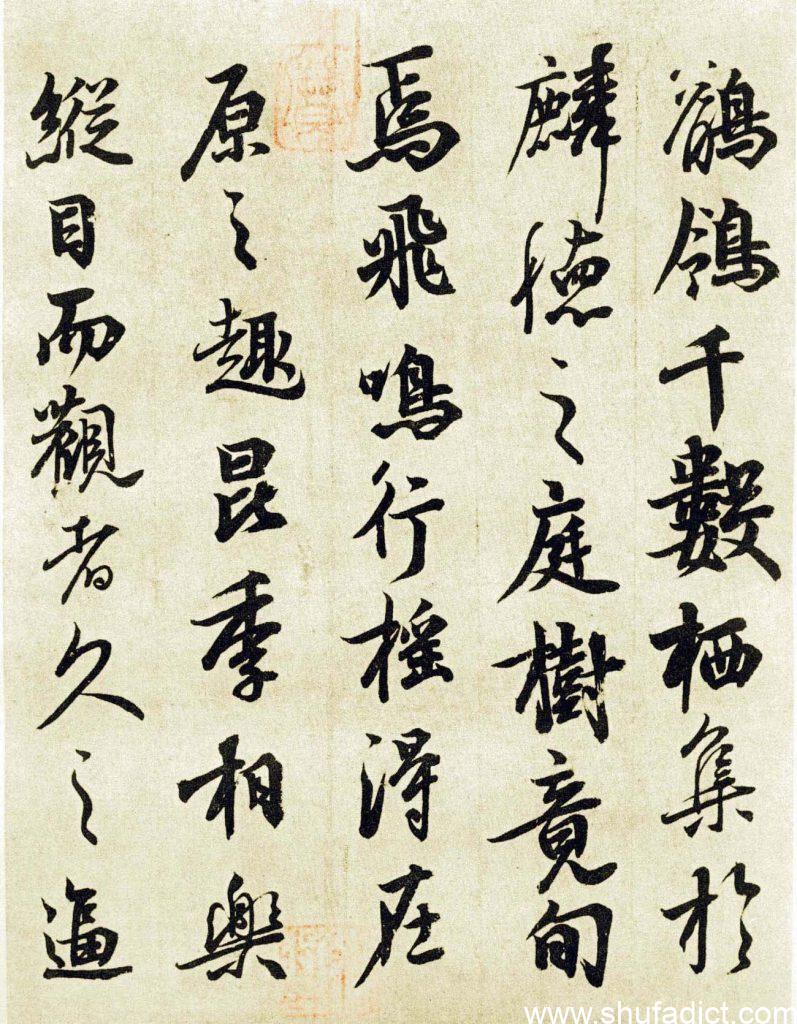 鶺鴒千數栖集於
麟德之庭樹竟旬
焉飛鳴行搖得在
原之趣昆季相樂
縱目而觀者久之逼
www.shufadict.com